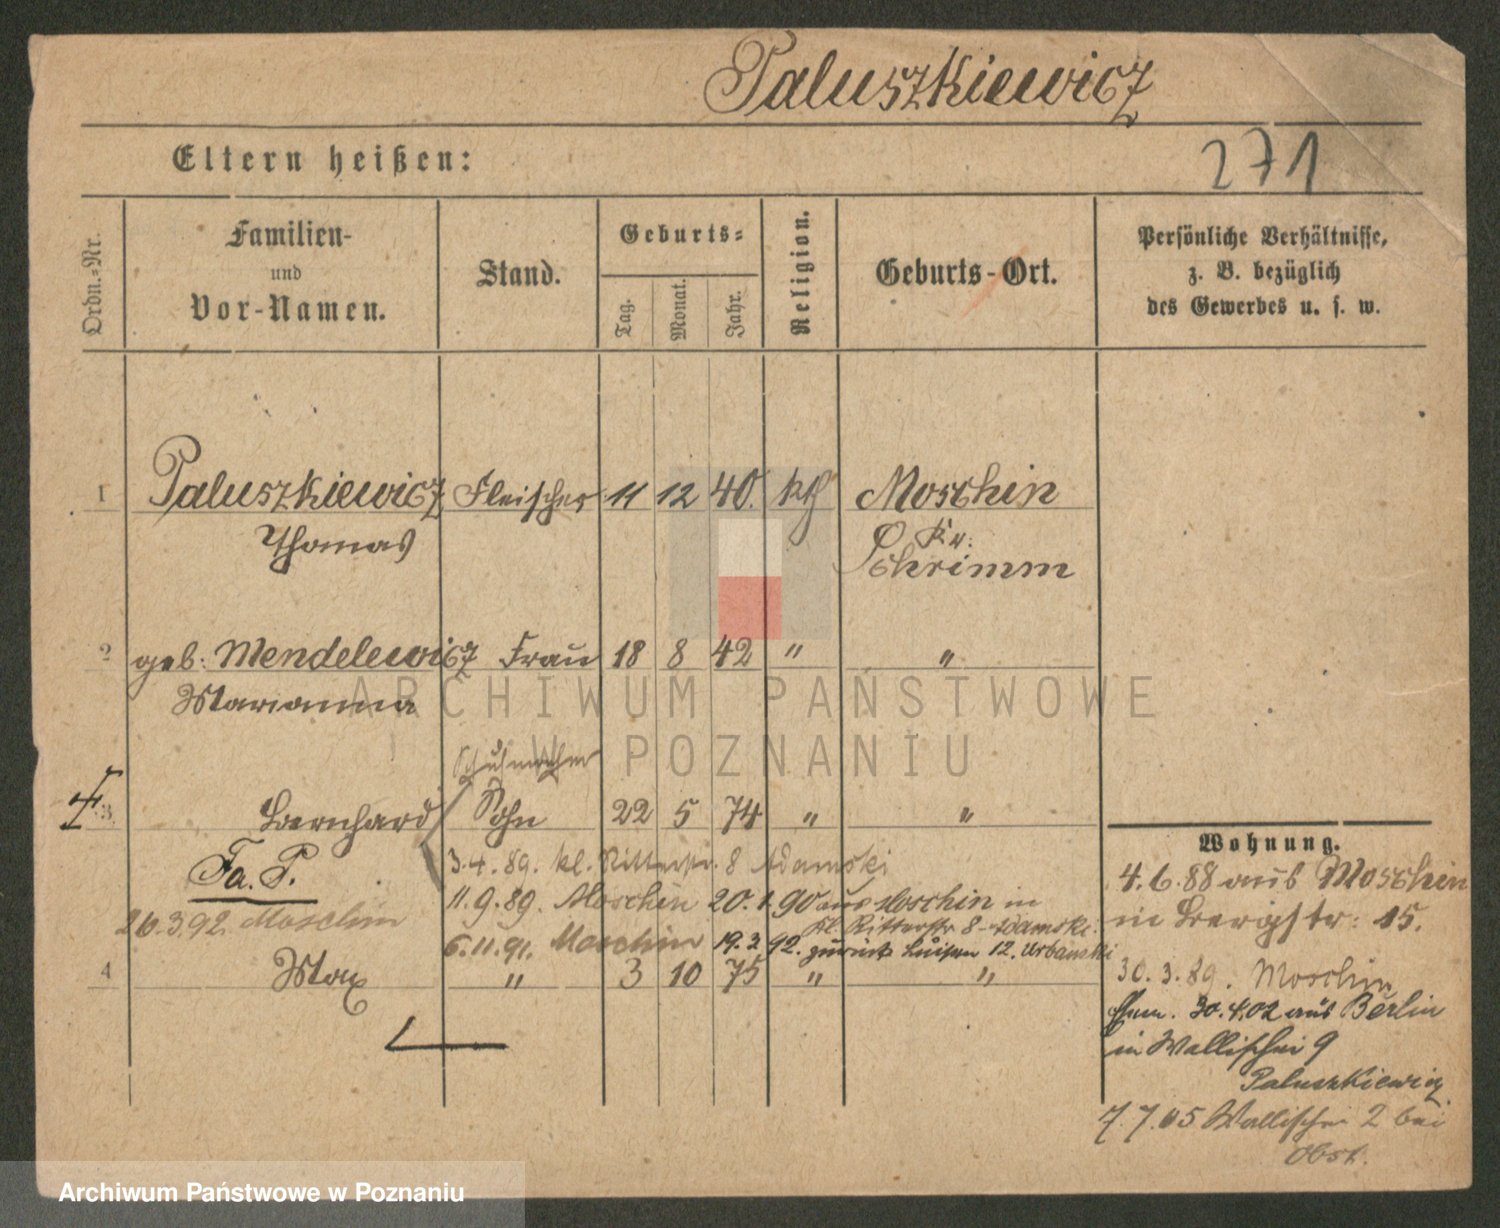 Paluszkiewicz
271
Eltern heißen:
Ordn.-Nr.
Familien-
und
Vor-Namen.
Stand.
Geburts-
Tag.
Monat.
Jahr.
Religion.
Geburts-Ort.
Persönliche Verhältnisse,
z. B. bezüglich
des Gewerbes u. s. w.
1 Paluszkiewicz Fleischer 11 12 40. kth Moschin
Thomas Kr. Schrimm
2 geb: Mendelewicz Frau 18 8 42 " "
Marianna
Schuhmacher
3 Bernhard Sohn 22 5 74 " "
Fa. P.
3.4.89. kl. Ritterstr. 8 Adamski
11.9.89. Moschin 20.1.90 aus Moschin in
kl. Ritterstr 8 Adamski
26.3.92. Moschin
6.11.91. Moschin 19.2.92. zurück Luisen 12. Urbanski
4 Max " 3 10 75 " "
Wohnung.
4.6.88 aus Moschin
in Bergstr: 15.
30.3.89. Moschin
30.4.02 aus Berlin
in Wallischei 9
Paluszkiewicz
7.7.05 Wallischei 2 bei
Obst.
ARCHIWUM PAŃSTWOWE
W POZNANIU
Archiwum Państwowe w Poznaniu